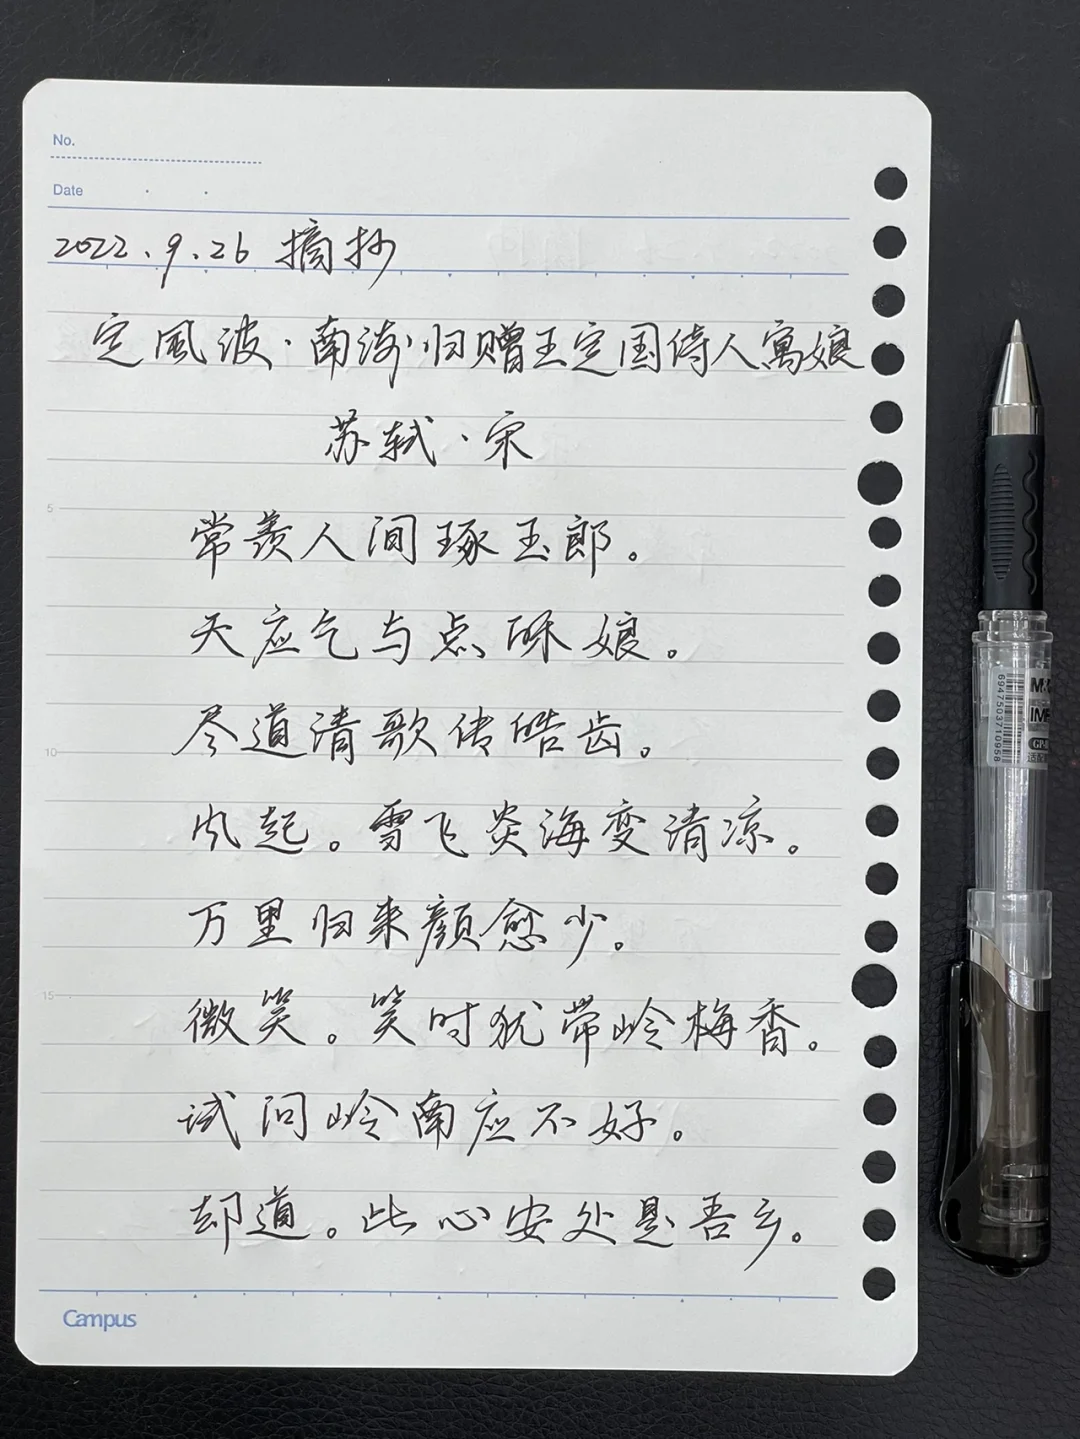 No.
Date
2022.9.26 摘抄
定風波·南海归赠王定国侍人寓娘
苏轼·宋
常羡人间琢玉郎。
天应乞与点酥娘。
5
尽道清歌传皓齿。
10
风起。雪飞炎海变清凉。
万里归来颜愈少。
15
微笑。笑时犹带岭梅香。
试问岭南应不好。
却道。此心安处是吾乡。
Campus
6947503710958